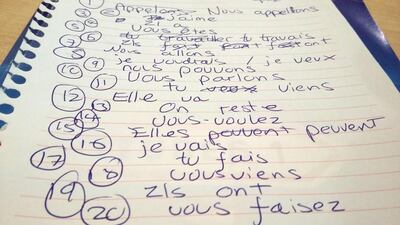 ① Appelons. Nous appellons
② J'aime
Il a
Vous êtes
tu travailler tu travais
ils font
Nous allons
je voudrais / je veux
⑩ nous pouvons
⑪ vous parlons
tu viens
⑫ Elle va
⑬ On reste
⑭ vous-voulez
⑮ Elles peuvent
⑯ je vais
⑰ tu fais
⑱ vous viens
⑲ Ils ont
⑳ vous faisez